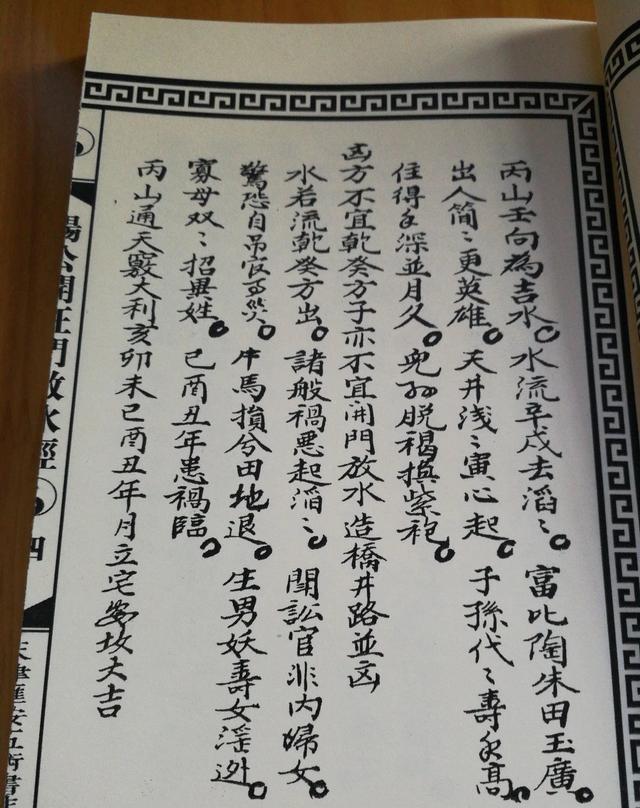 丙山壬向為吉水 水流辛戌去滔〻 富比陶朱田玉廣
出人簡〻更英雄 天井淺〻寅心起 子孫代〻壽永高
住得年深並月久 兒孫脱褐換紫袍
凶方不宜乾癸方子亦不宜開門放水造橋井路並凶
水若流乾癸方出 諸般禍惡起滔〻 閗訟官非內婦女
驚恐自吊官百災 牛馬損兮田地退 生男妖壽女淫迯
寡母双〻招異姓 巳酉丑年患禍臨
丙山通天竅大利亥卯未巳酉丑年月立宅安坟大吉
楊公開庄門放水經 四
天津匯安五術書店